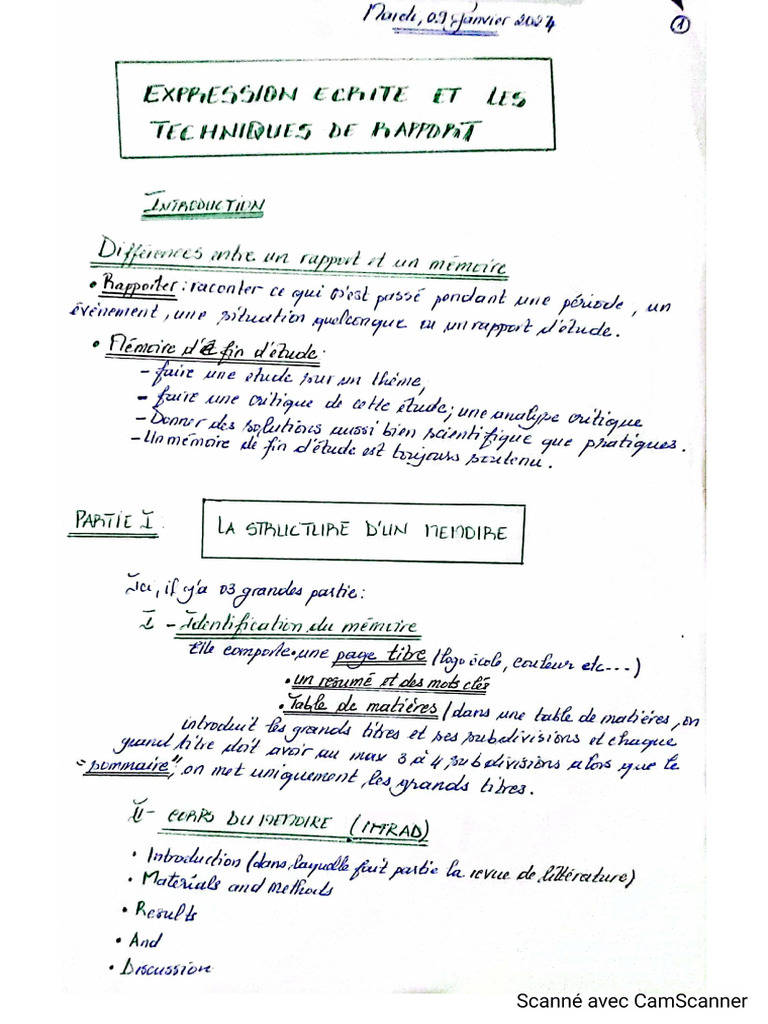 Mardi, 09 Janvier 2024
1
EXPRESSION ECRITE ET LES
TECHNIQUES DE RAPPORT
INTRODUCTION
Différences entre un rapport et un mémoire
• Rapporter : raconter ce qui s'est passé pendant une période, un
événement, une situation quelconque ou un rapport d'étude.
• Mémoire de fin d'étude :
- faire une étude sur un thème,
- faire une critique de cette étude; une analyse critique
- Donner des solutions aussi bien scientifique que pratiques.
- Un mémoire de fin d'étude est toujours soutenu.
PARTIE I : LA STRUCTURE D'UN MEMOIRE
Ici, il y'a 03 grandes partie :
I - Identification du mémoire
Elle comporte • une page titre (logo école, couleur etc...)
• un résumé et des mots clés
• Table de matières (dans une table de matières, on
introduit les grands titres et ses subdivisions et chaque
grand titre doit avoir au max 3 à 4 subdivisions alors que le
"sommaire", on met uniquement les grands titres.
II - CORPS DU MEMOIRE (IMRAD)
• Introduction (dans laquelle fait partie la revue de littérature)
• Materials and methods
• Results
• And
• Discussion
Scanné avec CamScanner